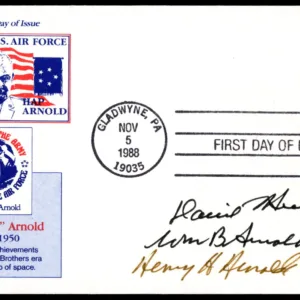 ay of Issue
S. AIR FORCE
HAP
ARNOLD
GLADWYNE, PA
NOV
5
1988
19035
FIRST DAY OF
THE ARMY
AIR FORCE
Arnold
" Arnold
1950
hievements
Brothers era
o of space.
David
Wm B Arnold
Henry H Arnold